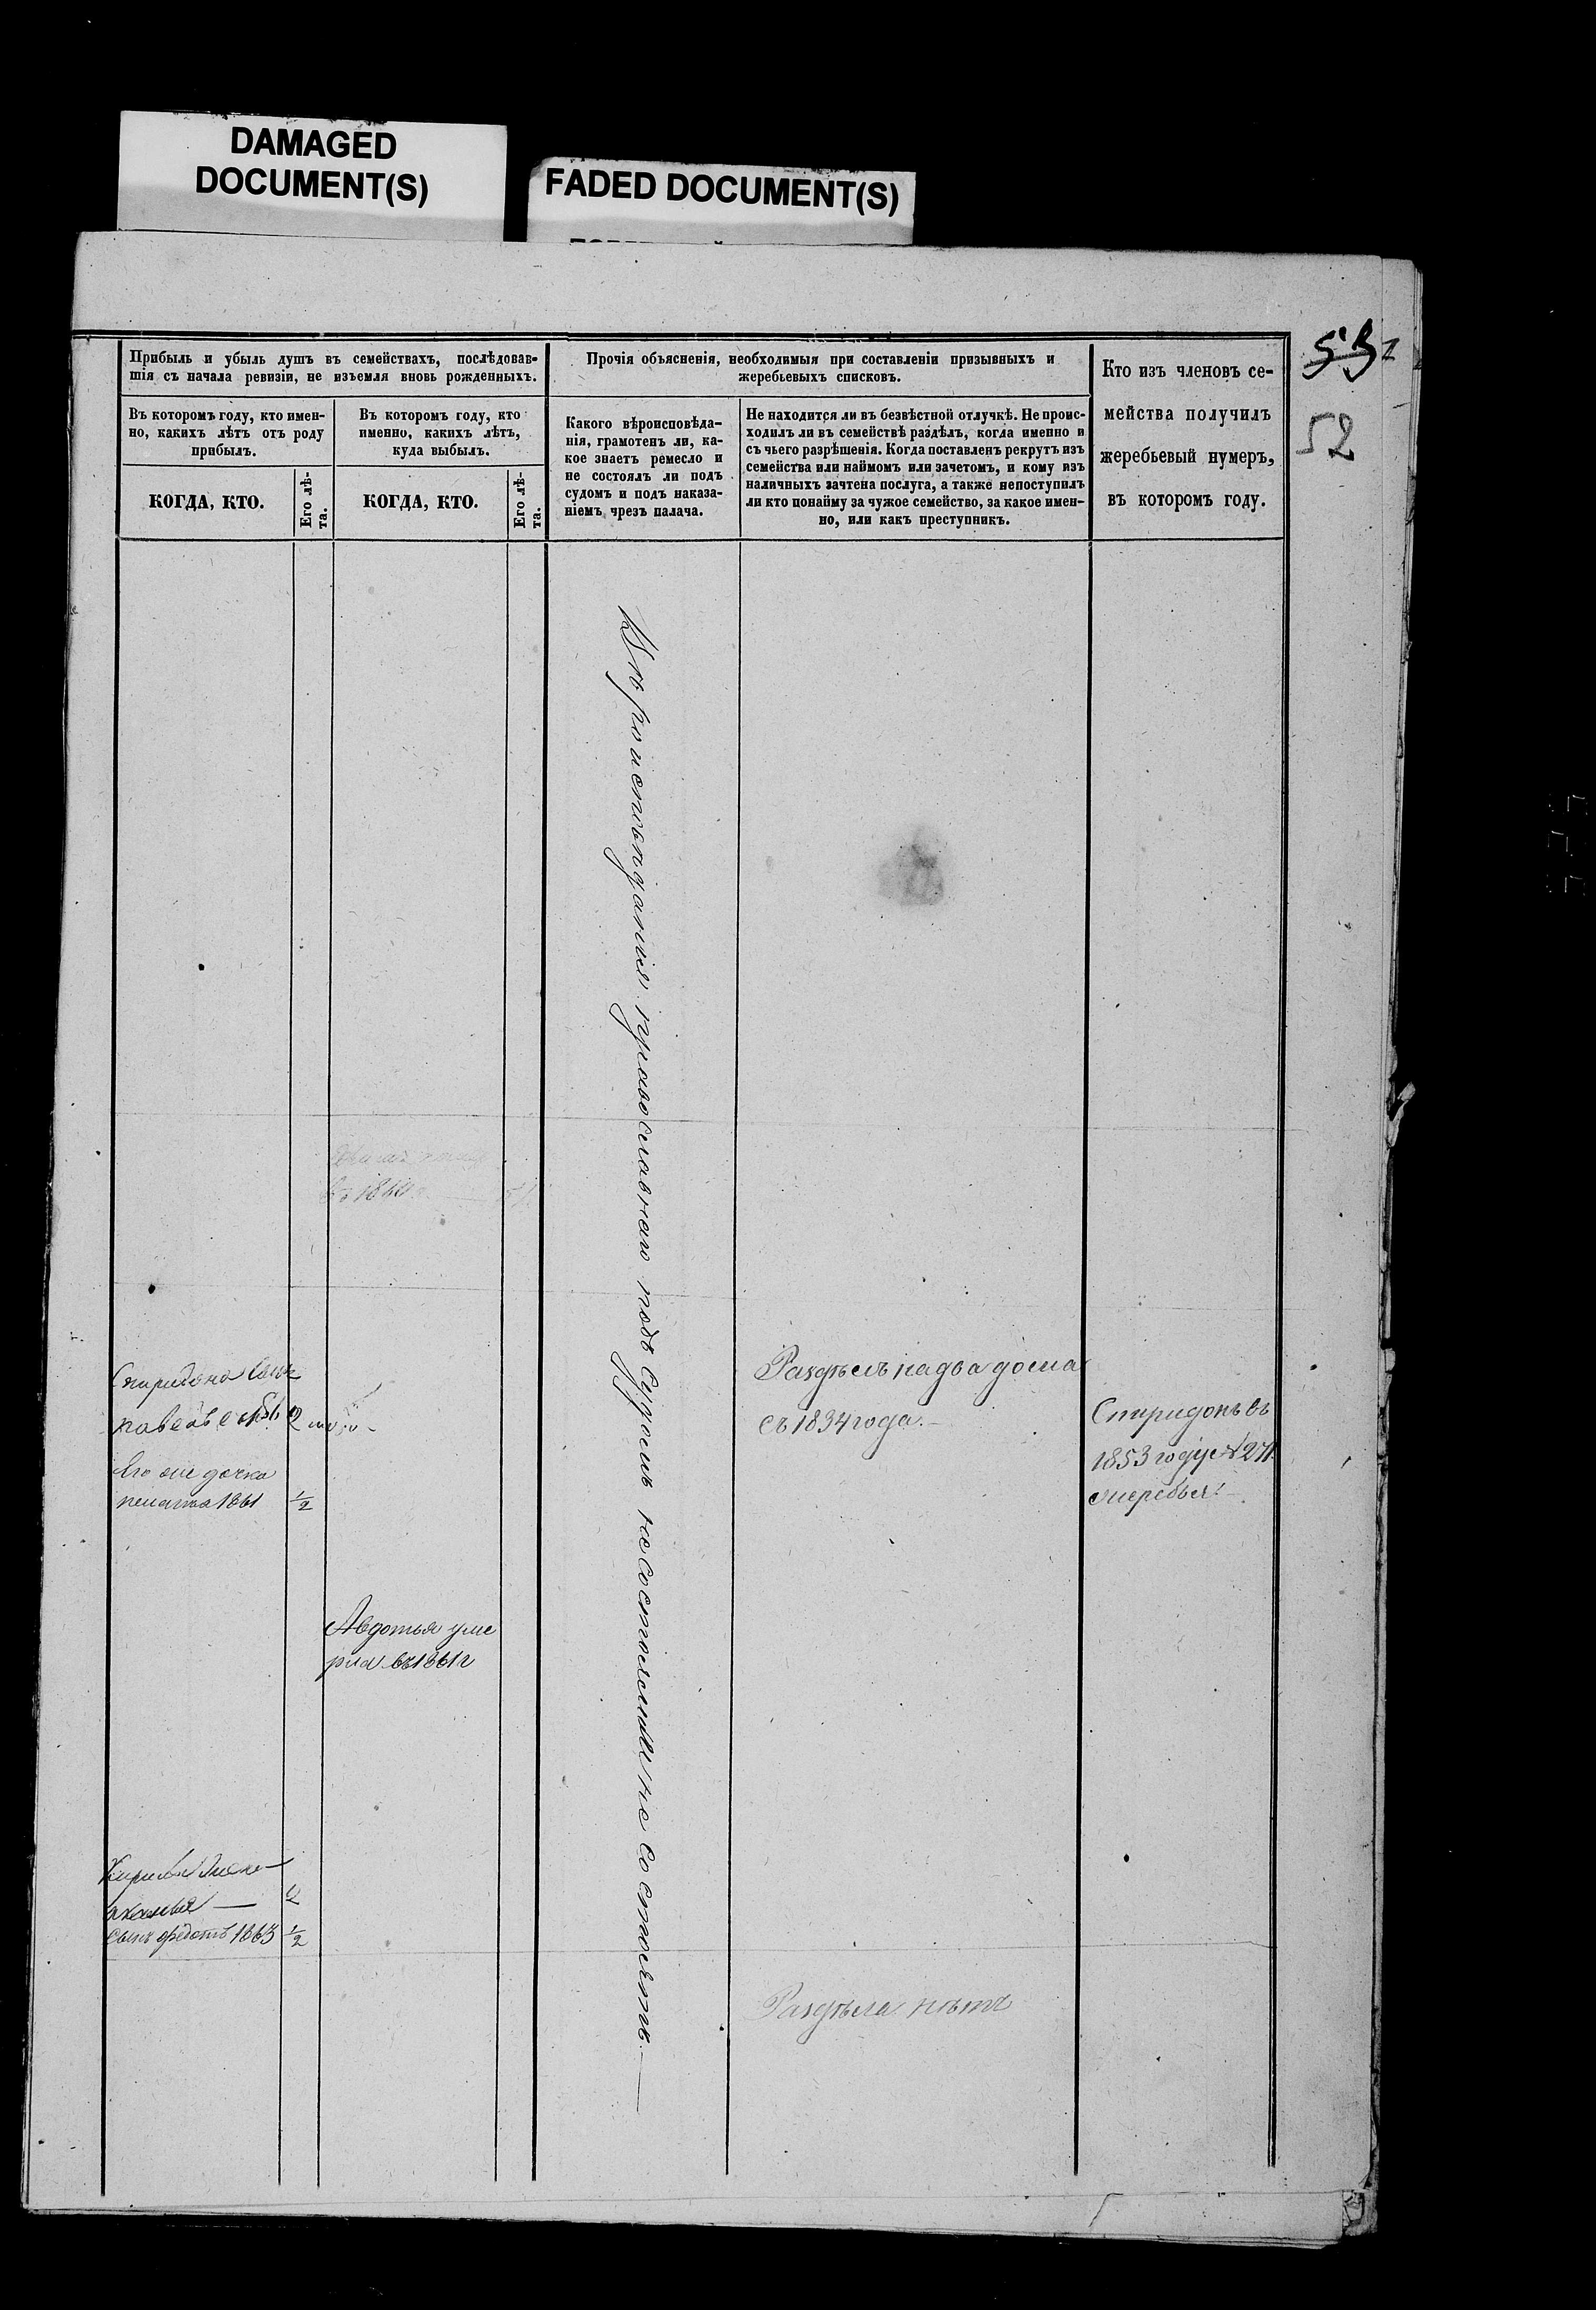 DAMAGED
DOCUMENT(S)
FADED DOCUMENT(S)
Прибыль и убыль душъ въ семействахъ, послѣдовав-
шія съ начала ревизіи, не изъемля вновь рожденныхъ.
Въ которомъ году, кто имен-
но, какихъ лѣтъ отъ роду
прибылъ.
КОГДА, КТО.
Его лѣ-
та.
Въ которомъ году, кто
именно, какихъ лѣтъ,
куда выбылъ.
КОГДА, КТО.
Его лѣ-
та.
Прочія объясненія, необходимыя при составленіи призывныхъ и
жеребьевыхъ списковъ.
Какого вѣроисповѣда-
нія, грамотенъ ли, ка-
кое знаетъ ремесло и
не состоялъ ли подъ
судомъ и подъ наказа-
ніемъ чрезъ палача.
Не находится ли въ безвѣстной отлучкѣ. Не проис-
ходилъ ли въ семействѣ раздѣлъ, когда именно и
съ чьего разрѣшенія. Когда поставленъ рекрутъ изъ
семейства или наймомъ или зачетомъ, и кому изъ
наличныхъ зачтена послуга, а также непоступилъ
ли кто понайму за чужое семейство, за какое имен-
но, или какъ преступникъ.
Кто изъ членовъ се-
мейства получилъ
жеребьевый нумеръ,
въ которомъ году.
53
52
Вѣроисповѣданія православнаго подъ судомъ не состояли и не состоятъ.
въ 18
Спиридона сынъ
павелъ 2
Его же дочка
1861 1/2
Раздѣлъ на два дома
съ 1834 года.
Спиридонъ въ
1853 году № 271
жеребья.
Авдотья уме
рла въ 1861 г
Кирила
2
сынъ федотъ 1863 1/2
Раздѣла нѣтъ